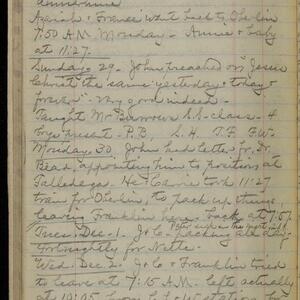 Azariah & Frances went back to Oberlin
7:50 A.M. Monday - Annie & baby
at 11:27.
Sunday - 29. John preached on "Jesus
Christ the same yesterday & today &
forever" - Very good indeed.
Taught Mr Burrows S.S. class - 4
boys present - P.B. L.H. T.F. F.W.
Monday 30. John had letter fr. Dr.
Beard, appointing him to position at
Talledega. He & Carrie took 11:27
train for Oberlin, to pack up things,
leaving Franklin here. back at 7:57
Tues. Dec. 1. J & C packing all day
Fortnightly for Nette.
Wed. Dec. 2. J & C & Franklin tried
to leave at 7:15 A.M. left actually
at